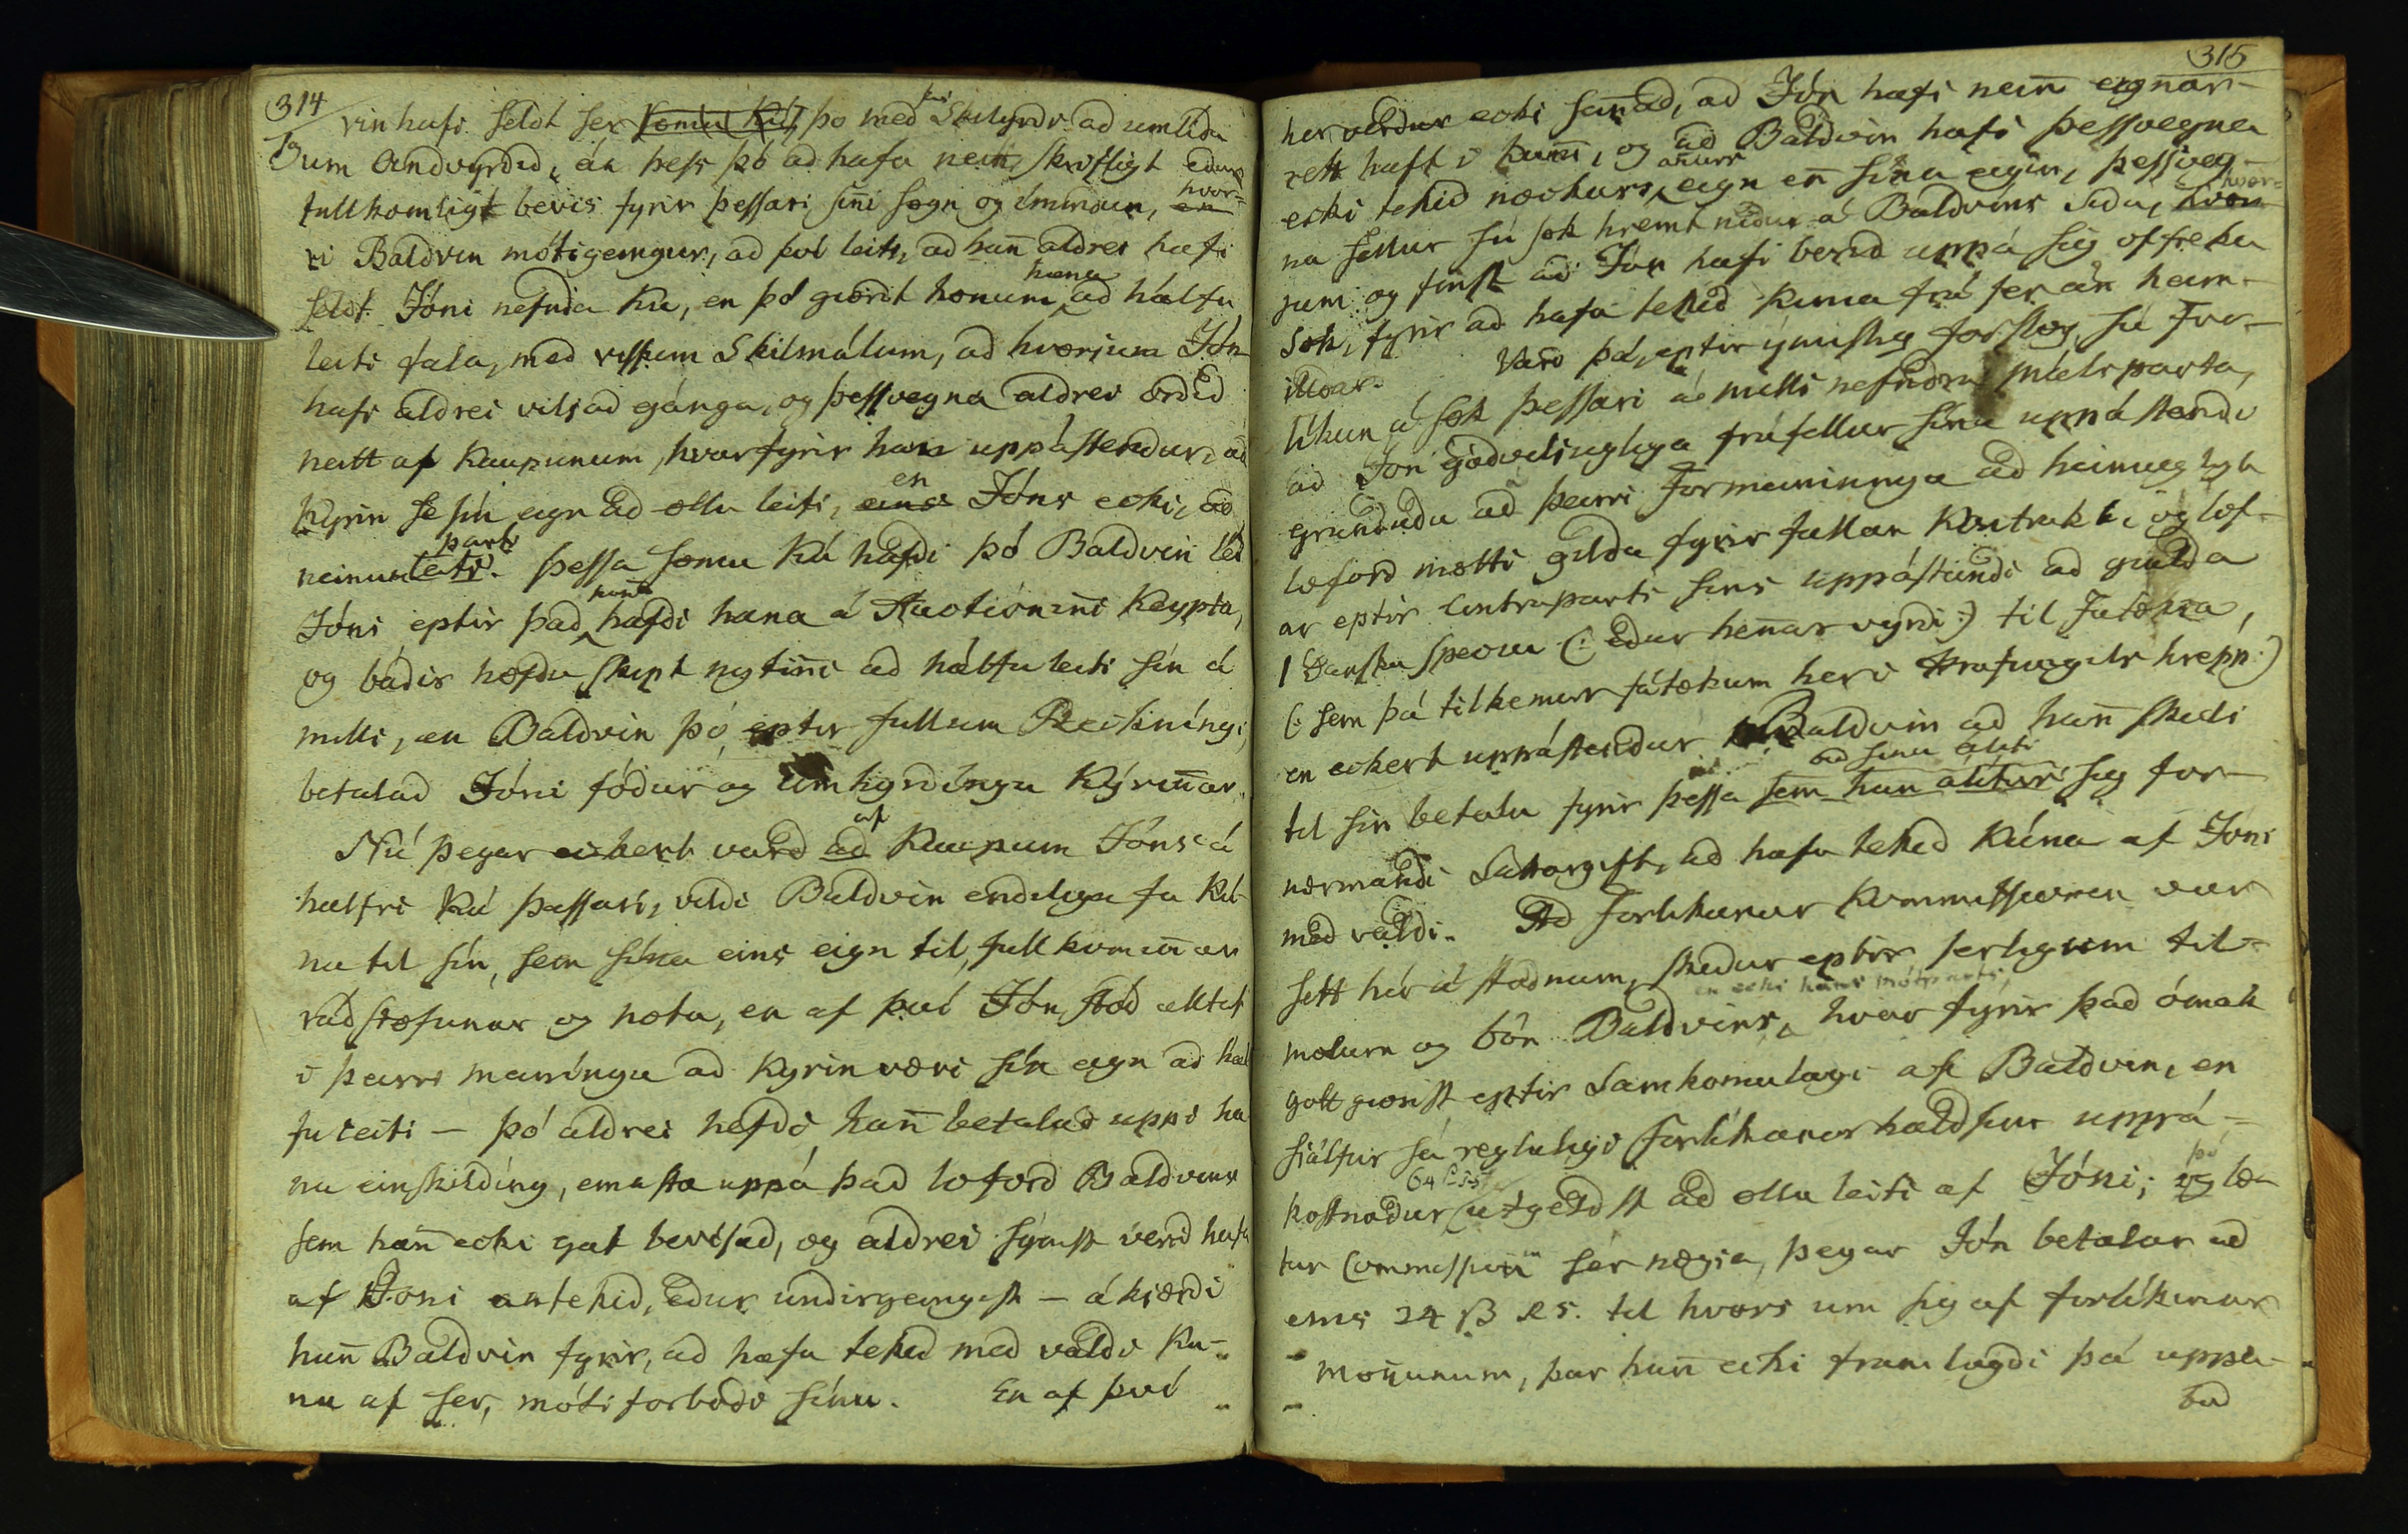 314
rin hafi seldt ser sömu Kú, þo með því Skilyrdi ad umlida
sum Andvyrdid, án þess þó ad hafa nein skriftligt edur
fullkomligt bevis fyrir þessari sini sögn og ímindun, en hvör=
ri Baldvin mótigeingur, ad því leiti, ad han̄ aldrei hafi
seldt Jóni nefnda Ku, en þó giördt honum hana ad hálfu
leiti fala, med vissum Skilmálum, ad hvörjum Jón
hafi aldrei viljad gánga, og þessvegna aldrei ordid
neitt af Kaupunum, hvarfyrir han̄ uppástendur, ad
Kyrin se sín eign ad öllu leiti, eins en Jóns ecki, ad
neinum leiti parti. Þessa sömu Kú hafdi þó Baldvin léd
Jóni eptir þad han̄ hafdi hana á Auctionin̄i Keypta,
og bádir höfdu skipt nytin̄i ad hálfu leiti sín á
milli, en Baldvin þó eptir fullum Reikníngi,
betalad Jóni fódur og umhyrdíngu Kýrin̄ar.
Nú þegar eckert vard ad af Kaupum Jóns á
halfri Kú þessari, vildi Baldvin endiliga fa Kú-
na til sín, sem sína eins eign til fullkomin̄ar
rádstöfunar og nota, en af því Jón stód alltid
i þeirri meiníngu ad Kyrin væri sín eign ad hál
fu leiti — þó aldrei hefdi han̄ betalad uppi ha
na einskilding, einasta uppá þad loford Baldvins
sem han̄ ecki gat bevísad, og aldrei sýnist verid hafa
af Joni antekid, edur undirgeingist — ákiærdi
han̄ Baldvin fyrir, ad hafa tekid med valdi Ku-
na af ser, móti forbodi sínu. En af því
315
her verdur ecki san̄ad, ad Jón hafi nein̄ eignar-
rett haft i Kun̄i, og ad Baldvin hafi þessvegna
ecki tekid nockurs an̄ars eign en̄ sína eigin, þessveg-
na fellur sú sök hreint nidur á Baldvins sidu, hvör=
jum og finst ad Jón hafi borid uppá sig offreka
sök, fyrir ad hafa tekid Kuna frá ser án heim-
ildar. Vard þá, eptir ýmislig forslög, sú For-
líkun á sök þessari á milli nefndra málsparta,
ad Jon gódviliugliga fráfellur sína uppástandi
grundudu ad þeirri Formeiningu ad heimuglygt
loford mætti gilda fyrir fullan Kontrakt, og lof-
ar eptir Contraparts síns uppástandi ad gialda
1 Danska Speciu (: edur hen̄ar vyrdi :) til Fatækra,
(: sem þá tilkemur fátækum her i Hrafnagils hrepp :)
en eckert uppástendur Baldvin ad han̄ skuli
til sin betala fyrir þessa sem han̄ alitur ad sinu áliti sig for-
nærmandi Sakargift, ad hafa tekid Kúna af Jóni
med valdi. Ad Forlikunar Kommissionen var
sett hér á stadnum, skedur eptir serligum til-
mælum og bón Baldvins, en ecki hans mótparts, hvar fyrir þad ómak
gott giörist eptir Samkomulagi af Baldvin, en
siálfur sá regluligi Forlikunarhaldsins uppá-
kostnadur 64 s utgeldst ad öllu leiti af Jóni; og þó læ-
tur Commissionin ser nægia, þegar Jón betalar ad
eins 24 ß RS. til hvors um sig af forlikunar
mön̄unum, þar han̄ ecki framlagdi þá uppá-
bud